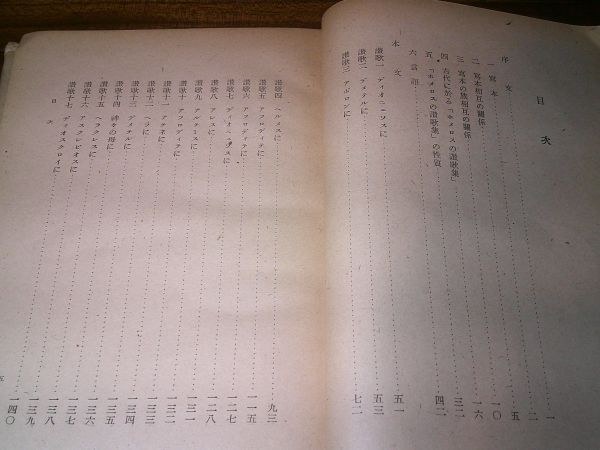 目次
序文 一
一 寫本 二
二 寫本相互の關係 五
三 寫本の族相互の關係 一〇
四 古代に於る「ホメロスの讃歌集」 一六
五 「ホメロスの讃歌集」の性質 三二
六 言語 四二
本文
讃歌一 ディオニュソスに 五一
讃歌二 デメテルに 五三
讃歌三 アポロンに 七二
讃歌四 ヘルメスに 九三
讃歌五 アフロディテに 一一五
讃歌六 アフロディテに 一二七
讃歌七 ディオニュソスに 一二八
讃歌八 アレスに 一三一
讃歌九 アルテミスに 一三二
讃歌十 アフロディテに 一三三
讃歌十一 アテネに 一三三
讃歌十二 ヘラに 一三三
讃歌十三 デメテルに 一三四
讃歌十四 神々の母に 一三五
讃歌十五 ヘラクレスに 一三六
讃歌十六 アスクレピオスに 一三九
讃歌十七 ディオスクロイに 一四〇
目次
五